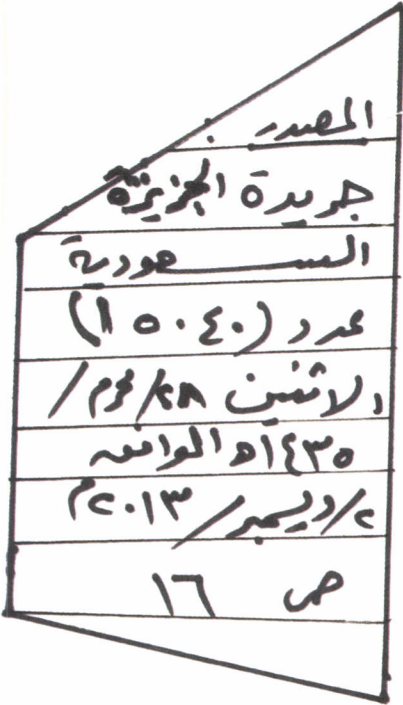 المصدر :
جريدة الجزيرة
السعودية
عدد (١٥٠٤٠)
الاثنين ٢٨/محرم/
١٤٣٥هـ الموافق
٢/ديسمبر/٢٠١٣م
ص ١٦